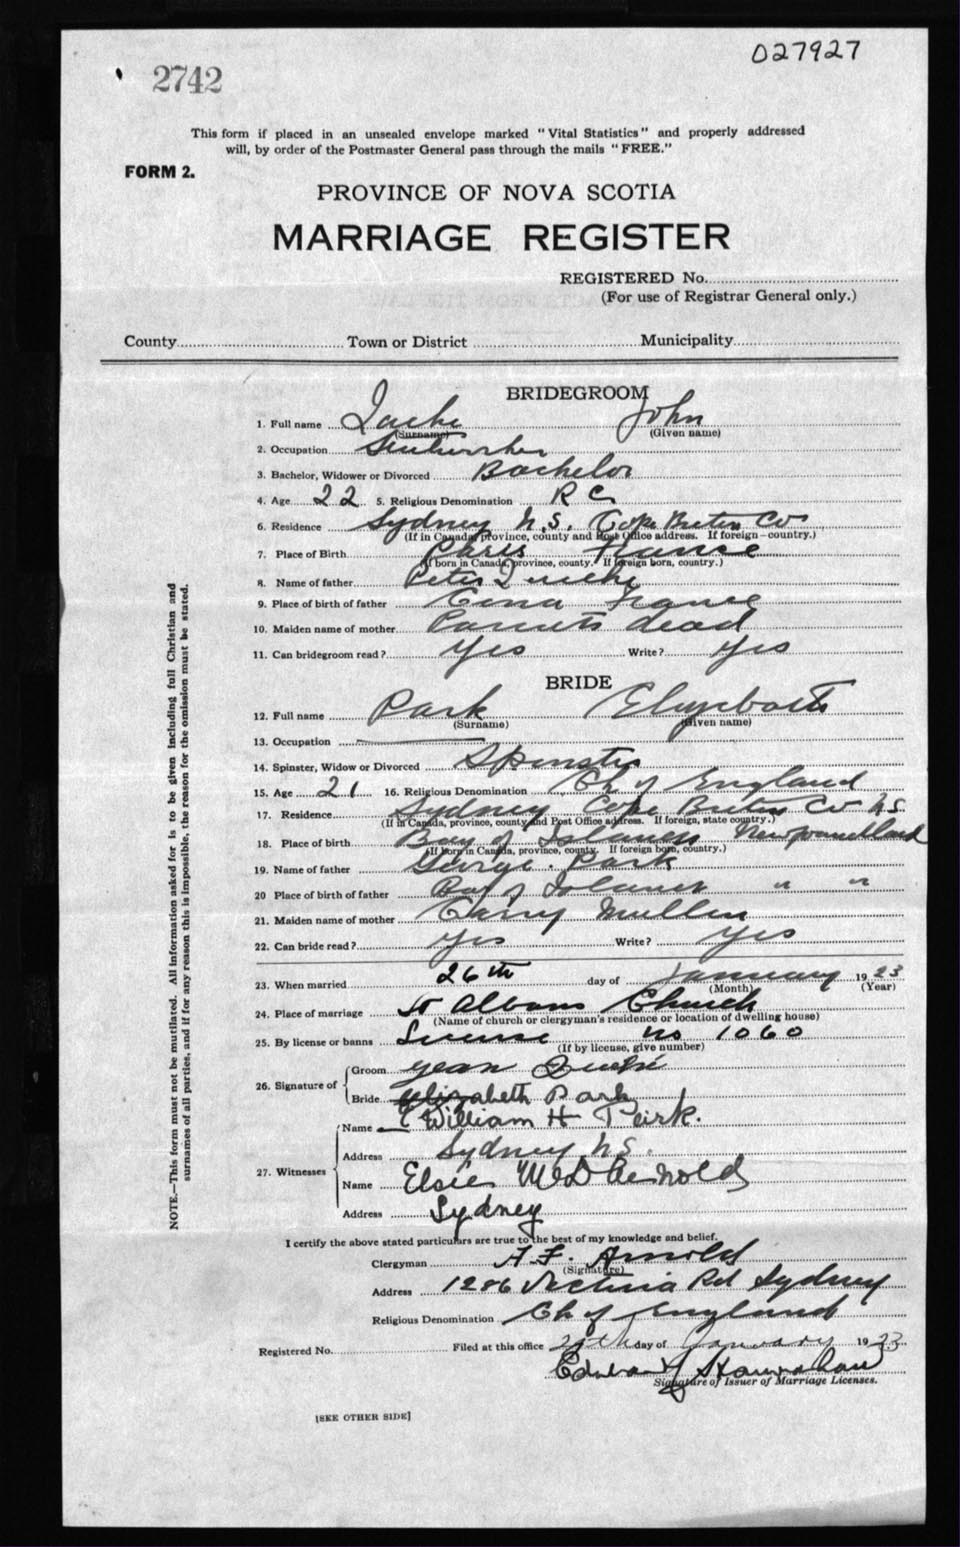 2742
027927
This form if placed in an unsealed envelope marked "Vital Statistics" and properly addressed
will, by order of the Postmaster General pass through the mails "FREE."
FORM 2.
PROVINCE OF NOVA SCOTIA
MARRIAGE REGISTER
REGISTERED No.
(For use of Registrar General only.)
County Town or District Municipality
BRIDEGROOM
1. Full name John
(Surname) (Given name)
2. Occupation
3. Bachelor, Widower or Divorced Bachelor
4. Age 22 5. Religious Denomination R C
6. Residence Sydney N.S. Cape Breton Co
(If in Canada, province, county and Post Office address. If foreign—country.)
7. Place of Birth Paris France
(If born in Canada, province, county. If foreign born, country.)
8. Name of father Peter
9. Place of birth of father France
10. Maiden name of mother Parents dead
11. Can bridegroom read? Yes Write? Yes
BRIDE
12. Full name Park Elizabeth
(Surname) (Given name)
13. Occupation
14. Spinster, Widow or Divorced Spinster
15. Age 21 16. Religious Denomination Ch of England
17. Residence Sydney Cape Breton Co N S
(If in Canada, province, county and Post Office address. If foreign, state country.)
18. Place of birth Bay of Islands Newfoundland
(If born in Canada, province, county. If foreign born, country.)
19. Name of father George Park
20 Place of birth of father Bay of Islands " "
21. Maiden name of mother Mullin
22. Can bride read? Yes Write? Yes
23. When married 26th day of January 1923
(Month) (Year)
24. Place of marriage St Albans Church
(Name of church or clergyman's residence or location of dwelling house)
25. By license or banns License no 1060
(If by license, give number)
26. Signature of
Groom
Bride Elizabeth Park
27. Witnesses
Name William H
Address Sydney N.S.
Name Elsie
Address Sydney
I certify the above stated particulars are true to the best of my knowledge and belief.
Clergyman A. F. Arnold
(Signature)
Address 1286 Victoria Rd Sydney
Religious Denomination Ch of England
Registered No. Filed at this office day of January 1923
Signature of Issuer of Marriage Licenses.
[SEE OTHER SIDE]
NOTE.—This form must not be mutilated. All information asked for is to be given including full Christian and
surnames of all parties, and if for any reason this is impossible, the reason for the omission must be stated.